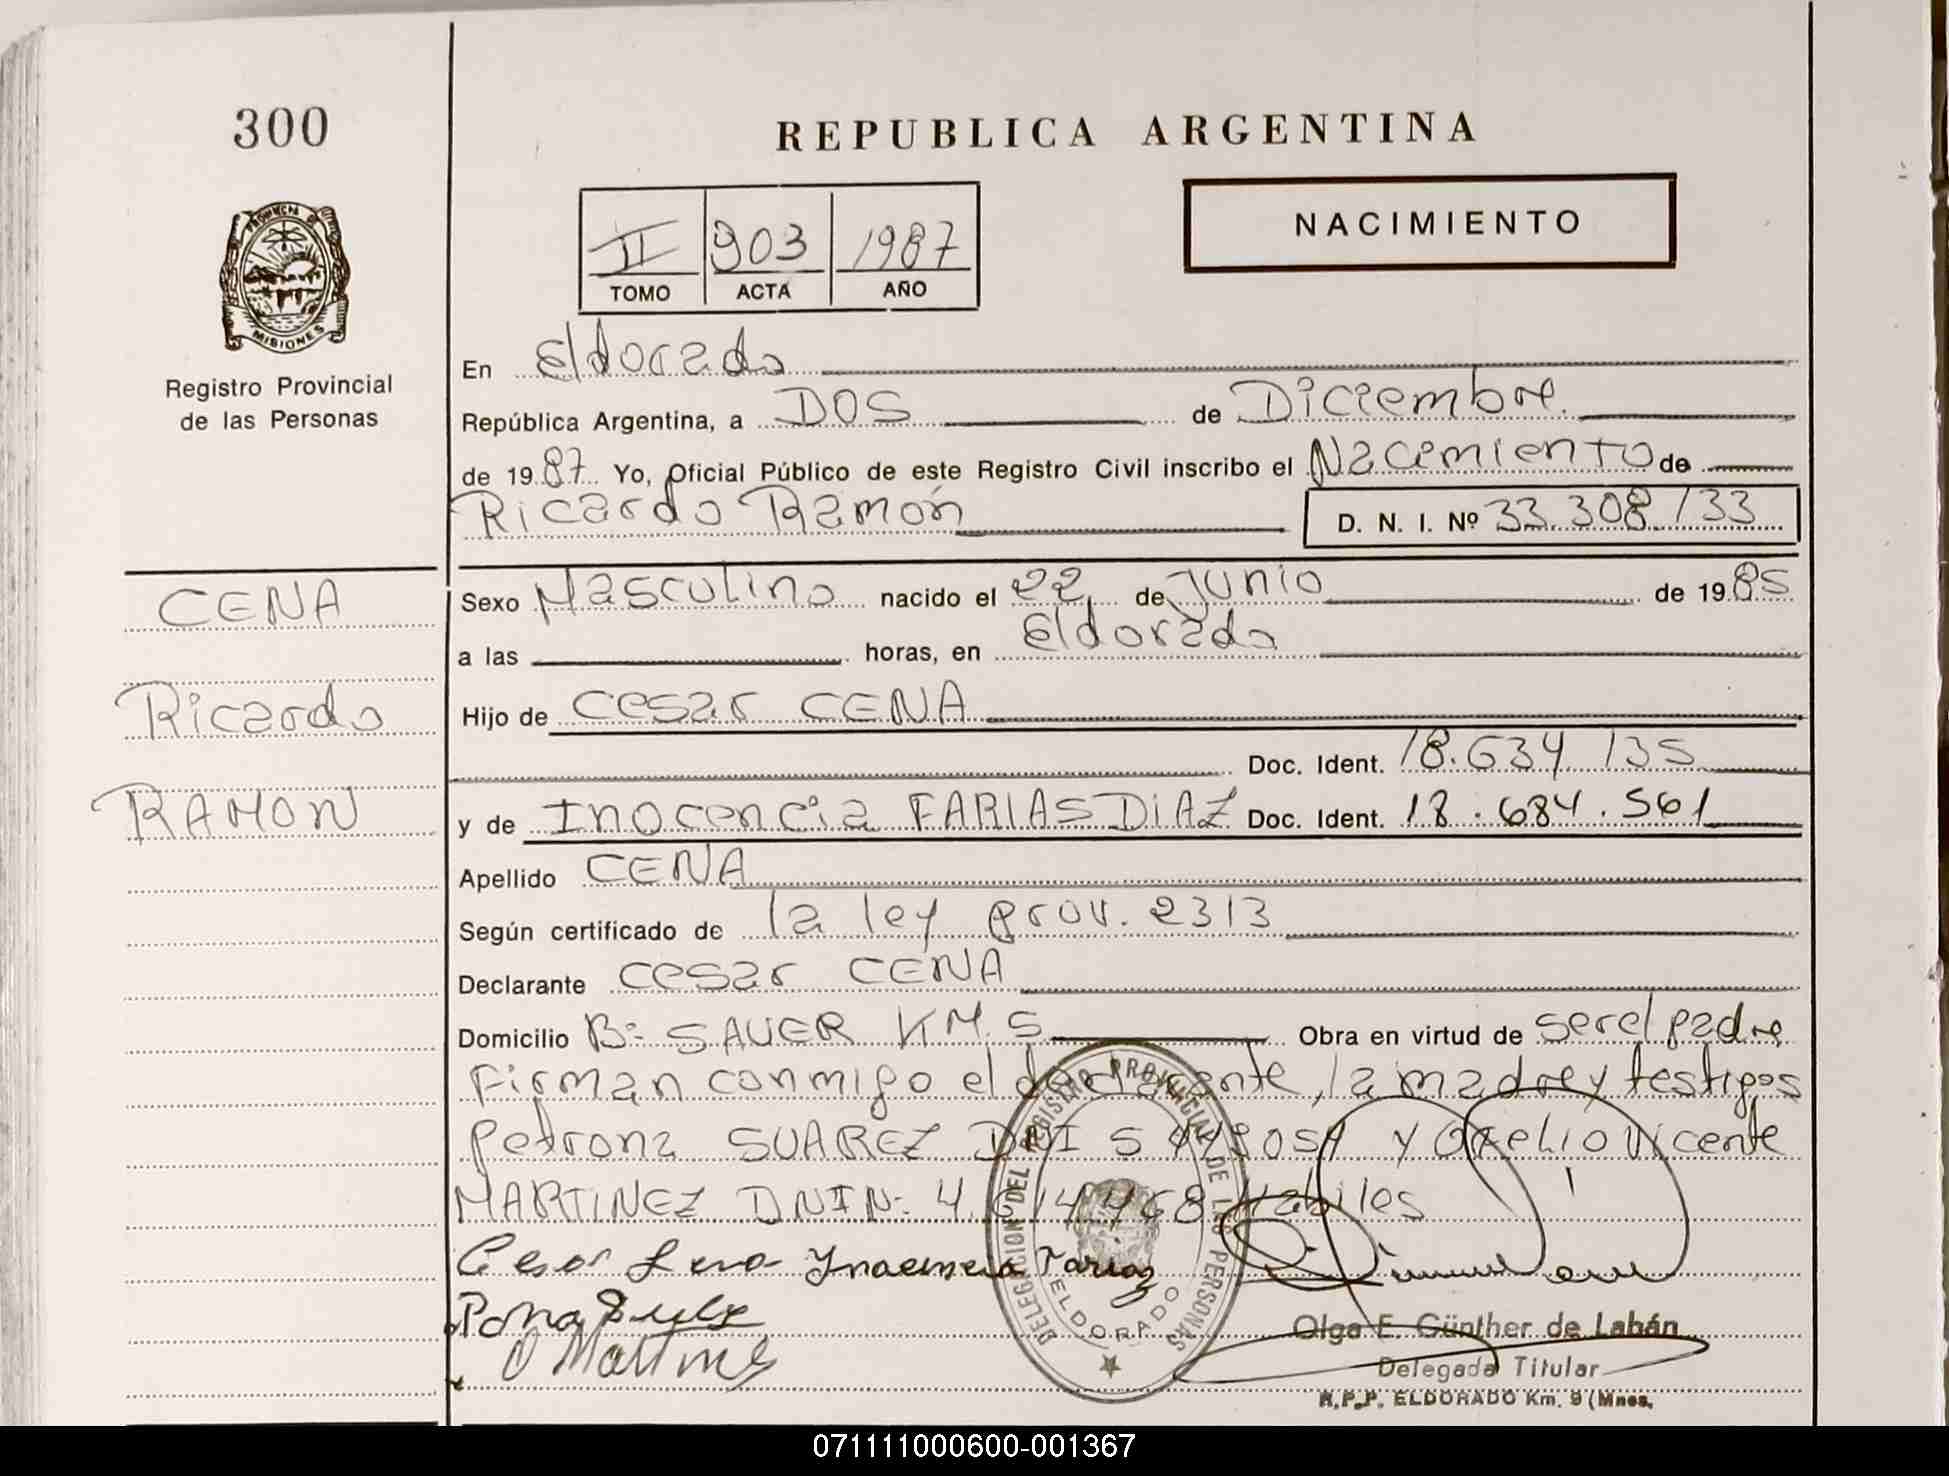 300
REPUBLICA ARGENTINA
PROVINCIA DE MISIONES
Registro Provincial
de las Personas
II 903 1987
TOMO ACTA AÑO
NACIMIENTO
En Eldorado
República Argentina, a DOS de Diciembre
de 1987 Yo, Oficial Público de este Registro Civil inscribo el Nacimiento de
Ricardo Ramón D. N. I. Nº 33.308.133
CENA
Ricardo
RAMON
Sexo Masculino nacido el 22 de Junio de 1985
a las horas, en Eldorado
Hijo de Cesar CENA
Doc. Ident. 18.634.135
y de Inocencia FARIAS DIAZ Doc. Ident. 18.684.561
Apellido CENA
Según certificado de la ley prov. 2313
Declarante Cesar CENA
Domicilio Bº SAUER KM. 5 Obra en virtud de ser el padre
Firman conmigo el declarante, la madre y testigos
Petrona SUAREZ DNI y Orelio Vicente
MARTINEZ DNI Nº 4.614.468 Habiles
Cesar Cena Inocencia Farias
O Martines
DELEGACION DEL REGISTRO PROVINCIAL DE LAS PERSONAS
ELDORADO
Olga E. Günther de Labán
Delegada Titular
R.P.P. ELDORADO Km. 9 (Mnes.
071111000600-001367